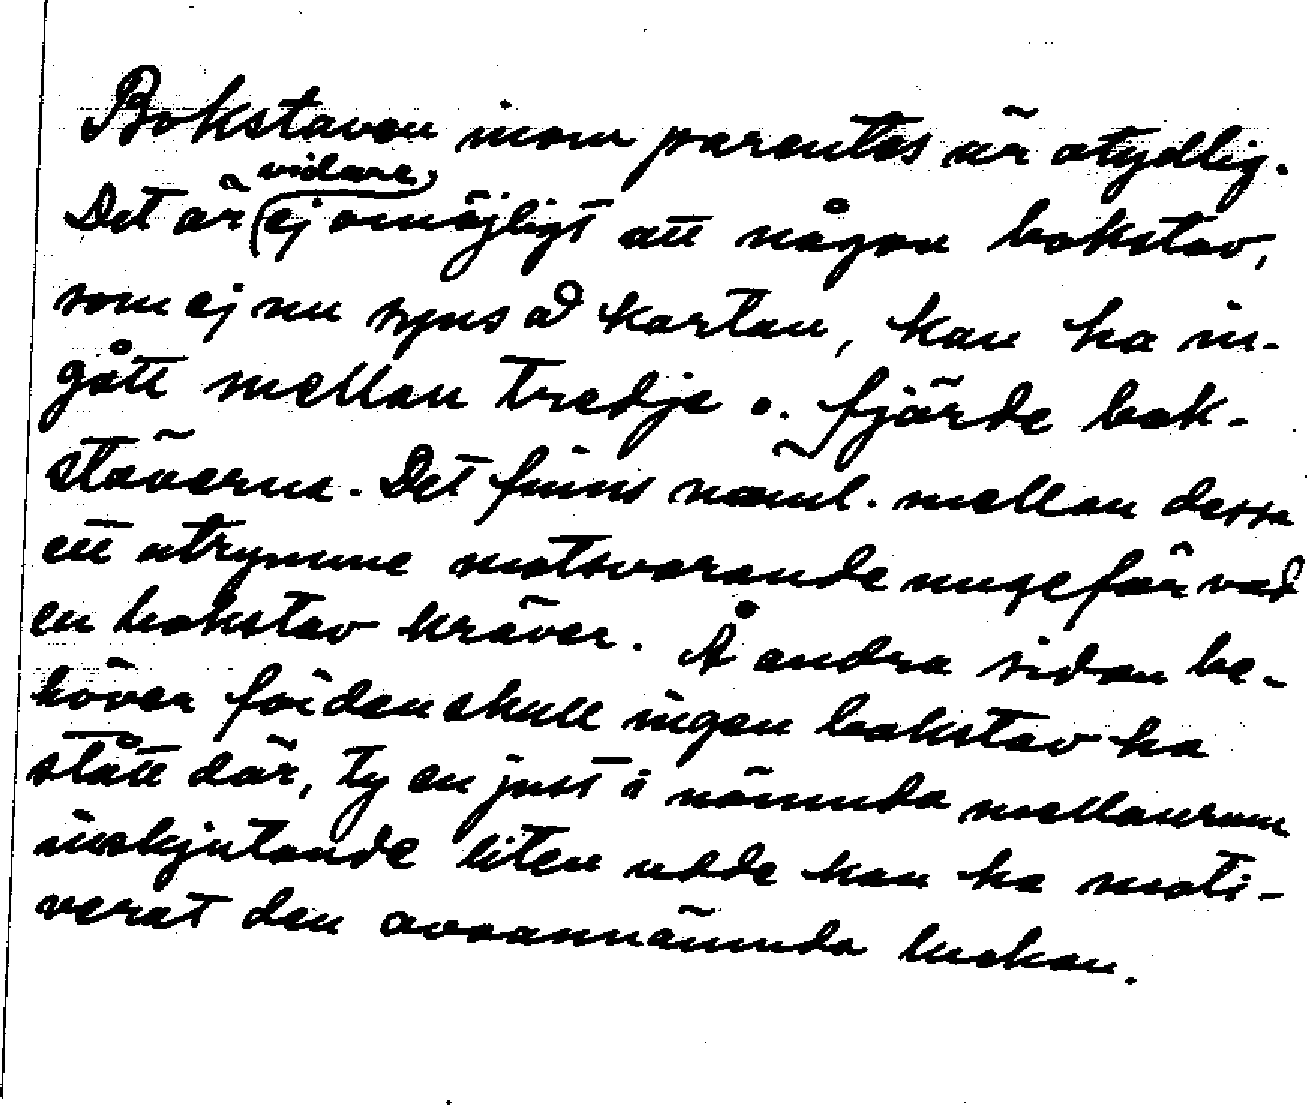 Bokstaven inom parentes är otydlig.
Det är vidare ej omöjligt att någon bokstav,
som ej nu syns å kartan, kan ha in-
gått mellan tredje o. fjärde bok-
stäverna. Det finns näml. mellan dessa
ett utrymme motsvarande ungefär vad
en bokstav kräver. Å andra sidan be-
höver för den skull ingen bokstav ha
stått där, ty en just i nämnda mellanrum
inskjutande liten udde kan ha moti-
verat den ovannämnda luckan.